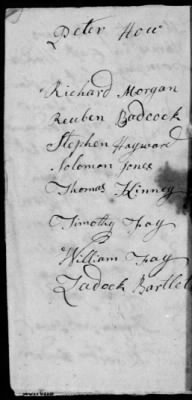 Peter How
Richard Morgan
Reuben Badcock
Stephen Hayward
Solomon Jones
Thomas Kinney
Timothy Fay
William Fay
Zadock Bartlet